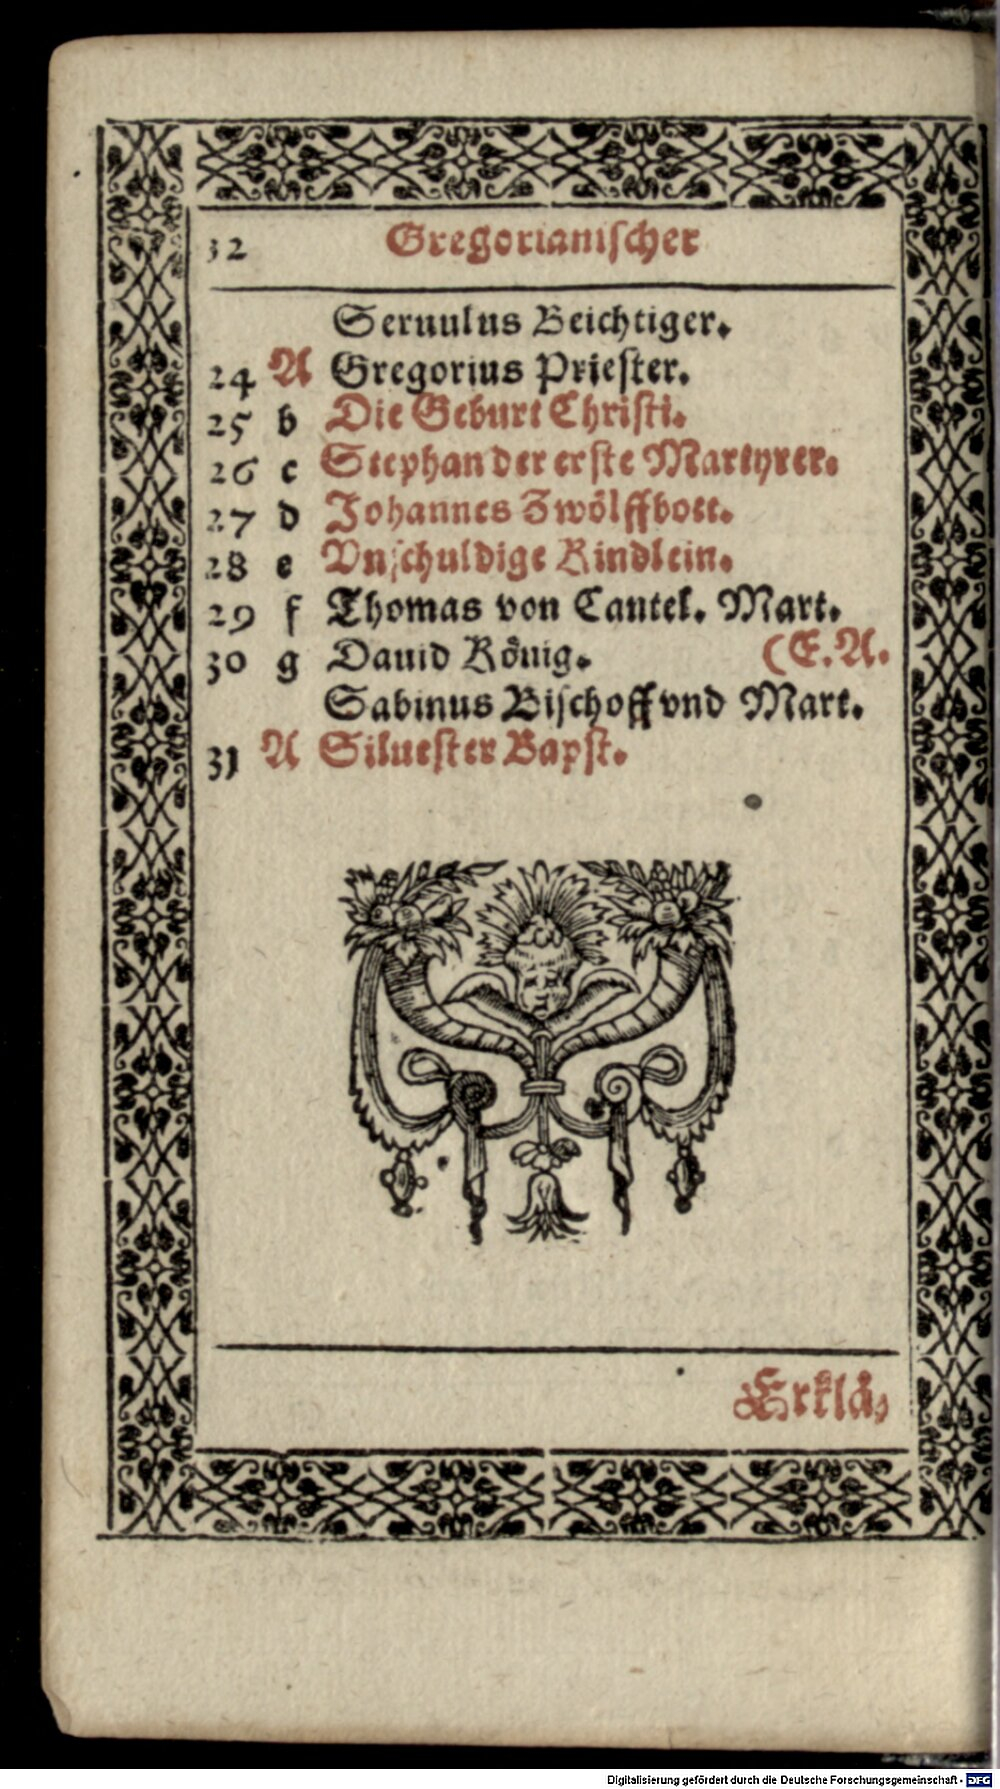 32 Gregorianiſcher
Seruulus Beichtiger.
24 A Gregorius Prieſter.
25 b Die Geburt Chriſti.
26 c Stephan der erſte Martyrer.
27 d Johannes Zwölffbott.
28 e Vnſchuldige Kindlein.
29 f Thomas von Cantel. Mart.
(E. A.
30 g Dauid Köuig.
Sabinus Biſchoff vnd Mart.
31 A Silueſter Bapſt.
Erklå⸗
Digitalisierung gefördert durch die Deutsche Forschungsgemeinschaft - DFG